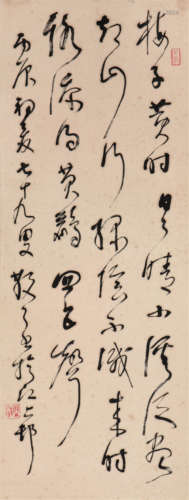 梅子黄时日日晴小溪泛盡
却山行綠陰不減来时
路添得黄鸝四五聲
丙辰初夏七十九叟散之書於江上邨